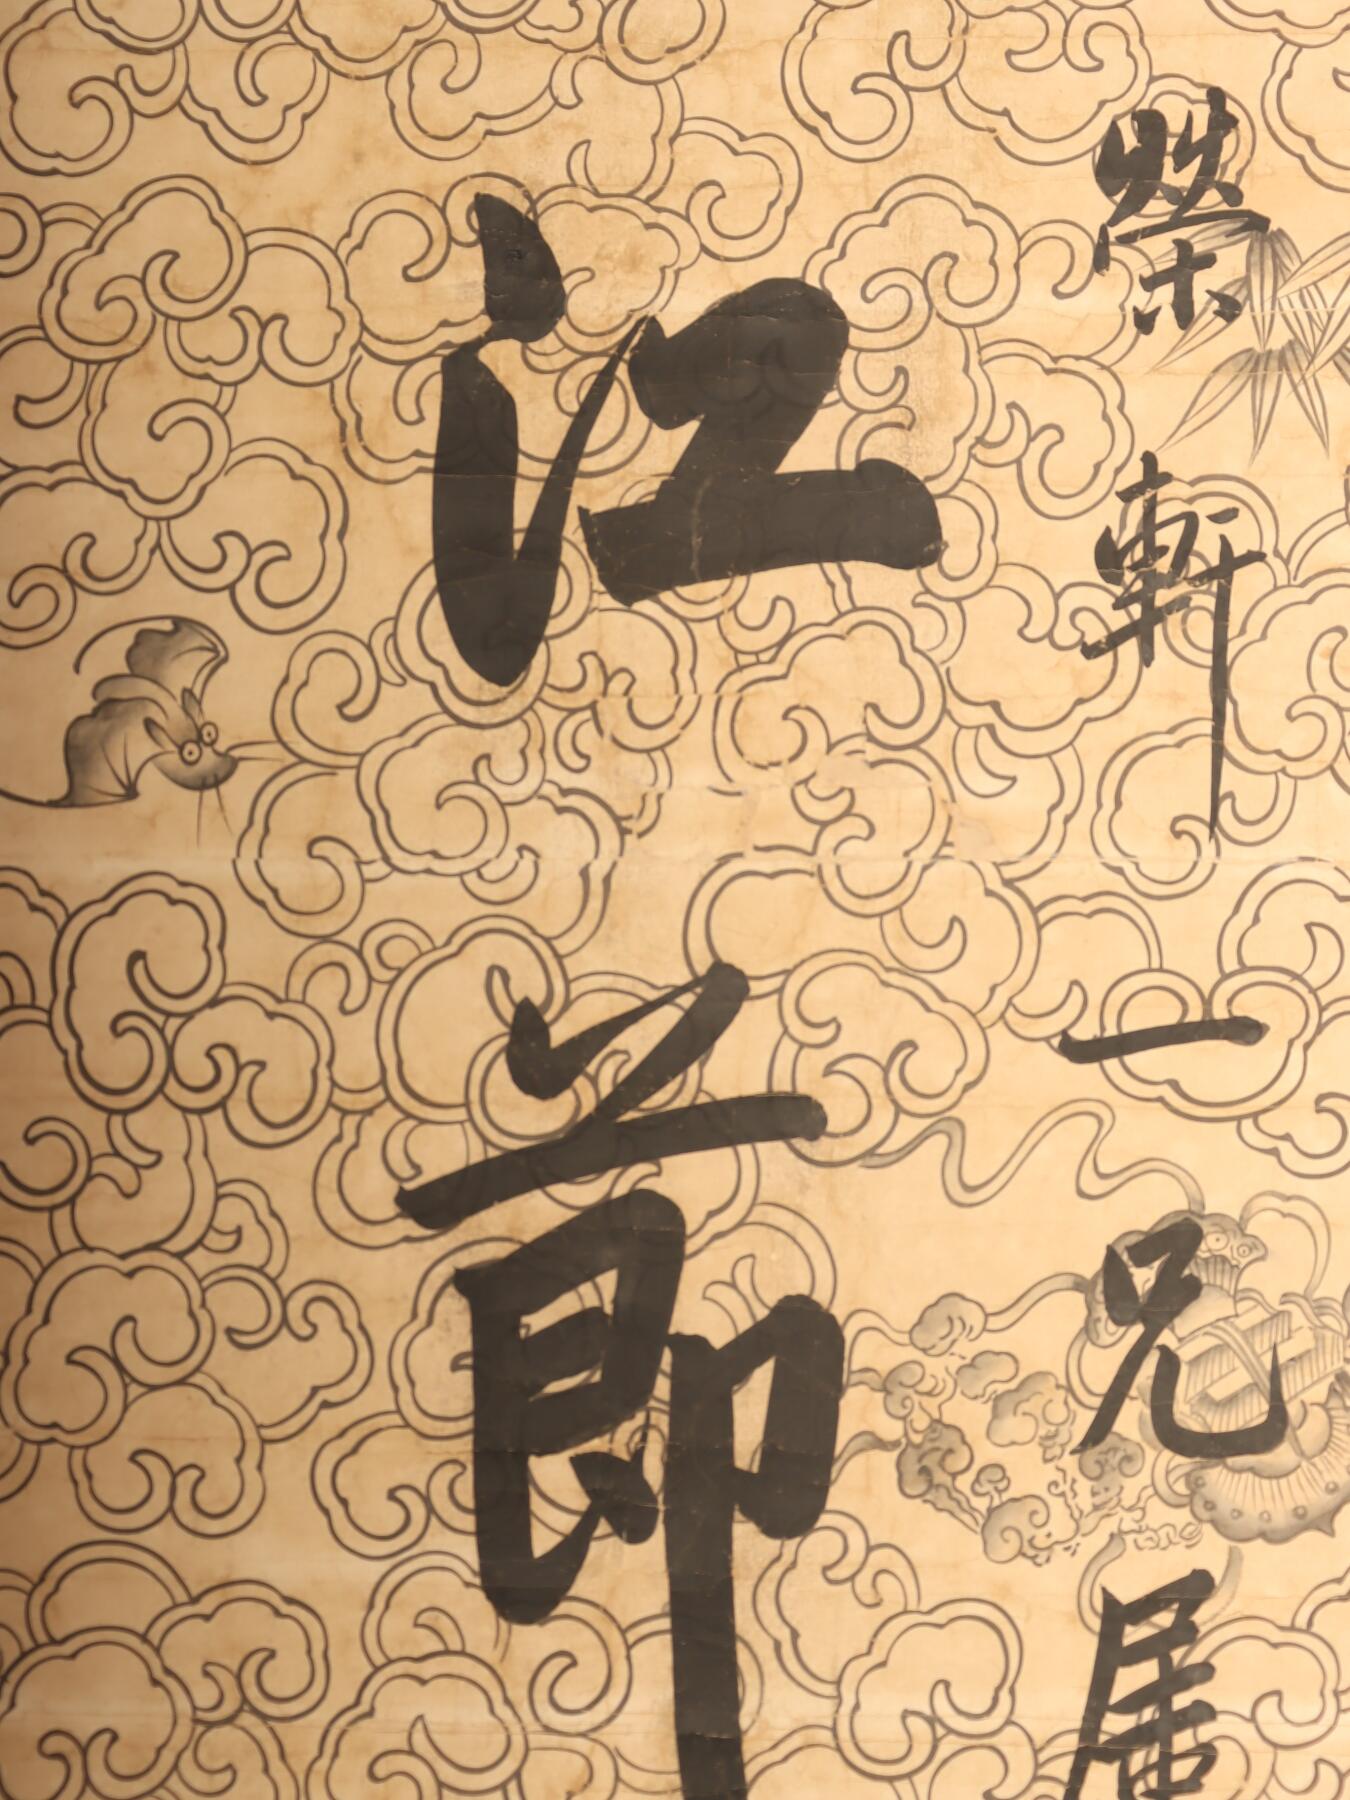 榮軒一兄
江節